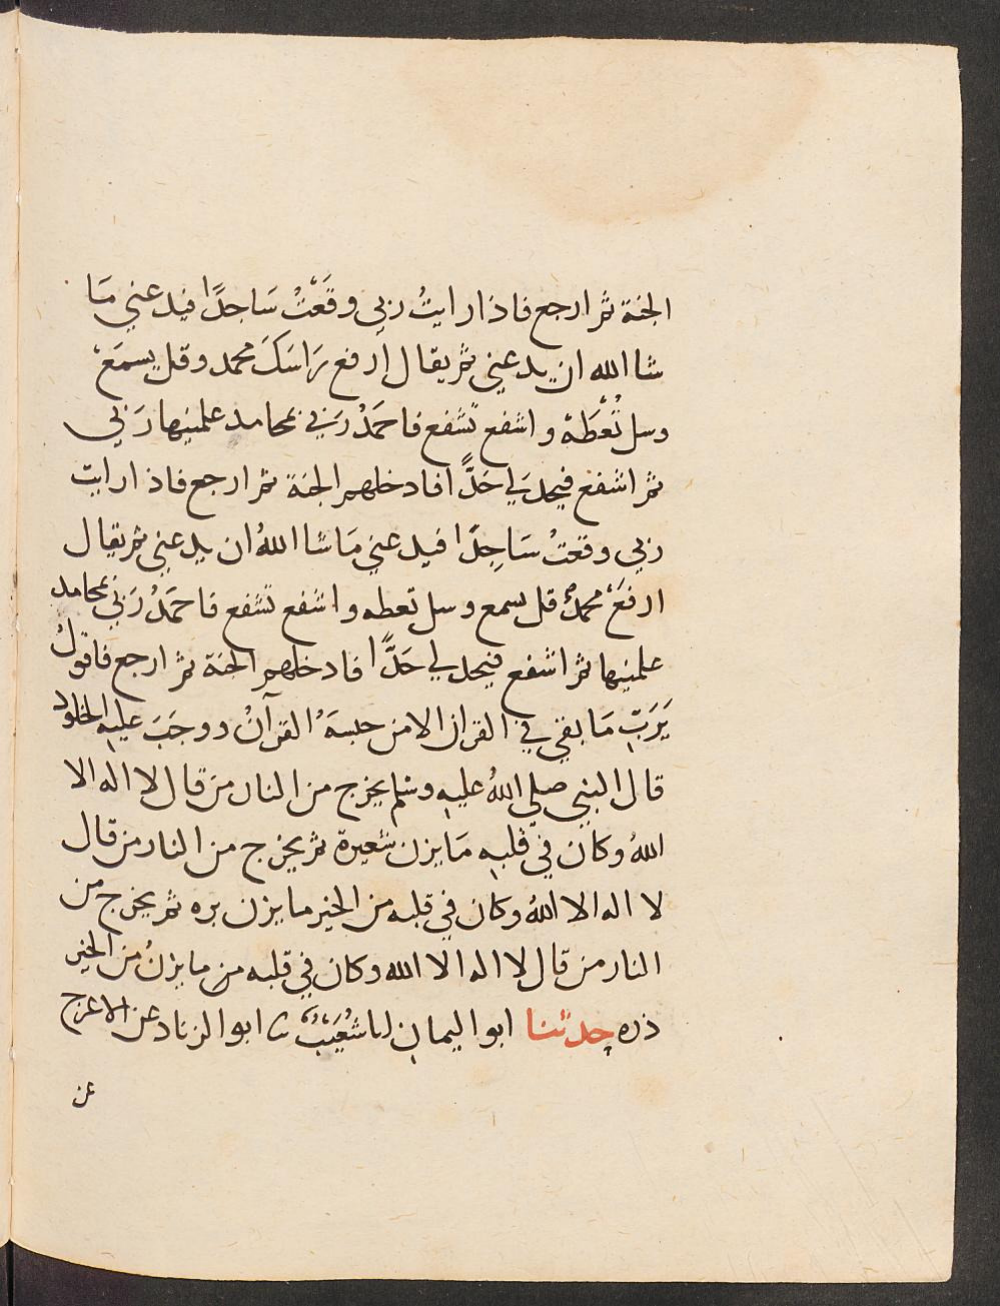 الجنة ثم ارجع فاذا رايتُ ربي وقَعْتُ سَاجدًا فيدعني مَا
شا الله ان يدعني ثم يقال ارفع رَاسَكَ محمد وقل يسمَعْ
وسل تُعْطَهْ واشفع تشفع فاحمَدُ رَبي بمحامد علمنيها رَبي
ثم اشفع فيحد لي حَدًّا فادخلهم الجنة ثم ارجع فاذا رايت
ربي وقعتُ سَاجِدًا فيدعني مَا شا اللهُ ان يدعني ثم يقال
ارفعْ محمدُ قل يسمع وسل تعطه واشفع تشفع فاحمَدُ رَبي بمحامد
علمنيها ثم اشفع فيحد لي حَدًّا فادخلهم الجنة ثم ارجع فاقولُ
يَرَبّ مَا بقي في القران الا من حبسَهُ القرآنُ ووجَبَ عليه الخلود
قال النبي صلي اللهُ عليه وسلم يخرج من النار من قال لا اله الا
اللهُ وكان في قلبه مَا يزن شعيرة ثم يخرج من النار من قال
لا اله الا اللهُ وكان في قلبه من الخير ما يزن بره ثم يخرج من
النار من قال لا اله الا الله وكان في قلبه من ما يزنُ من الخير
ذره حدثنا ابو اليمان انا شُعَيْبٌ ثنا ابو الزناد عن الاعرج
عن